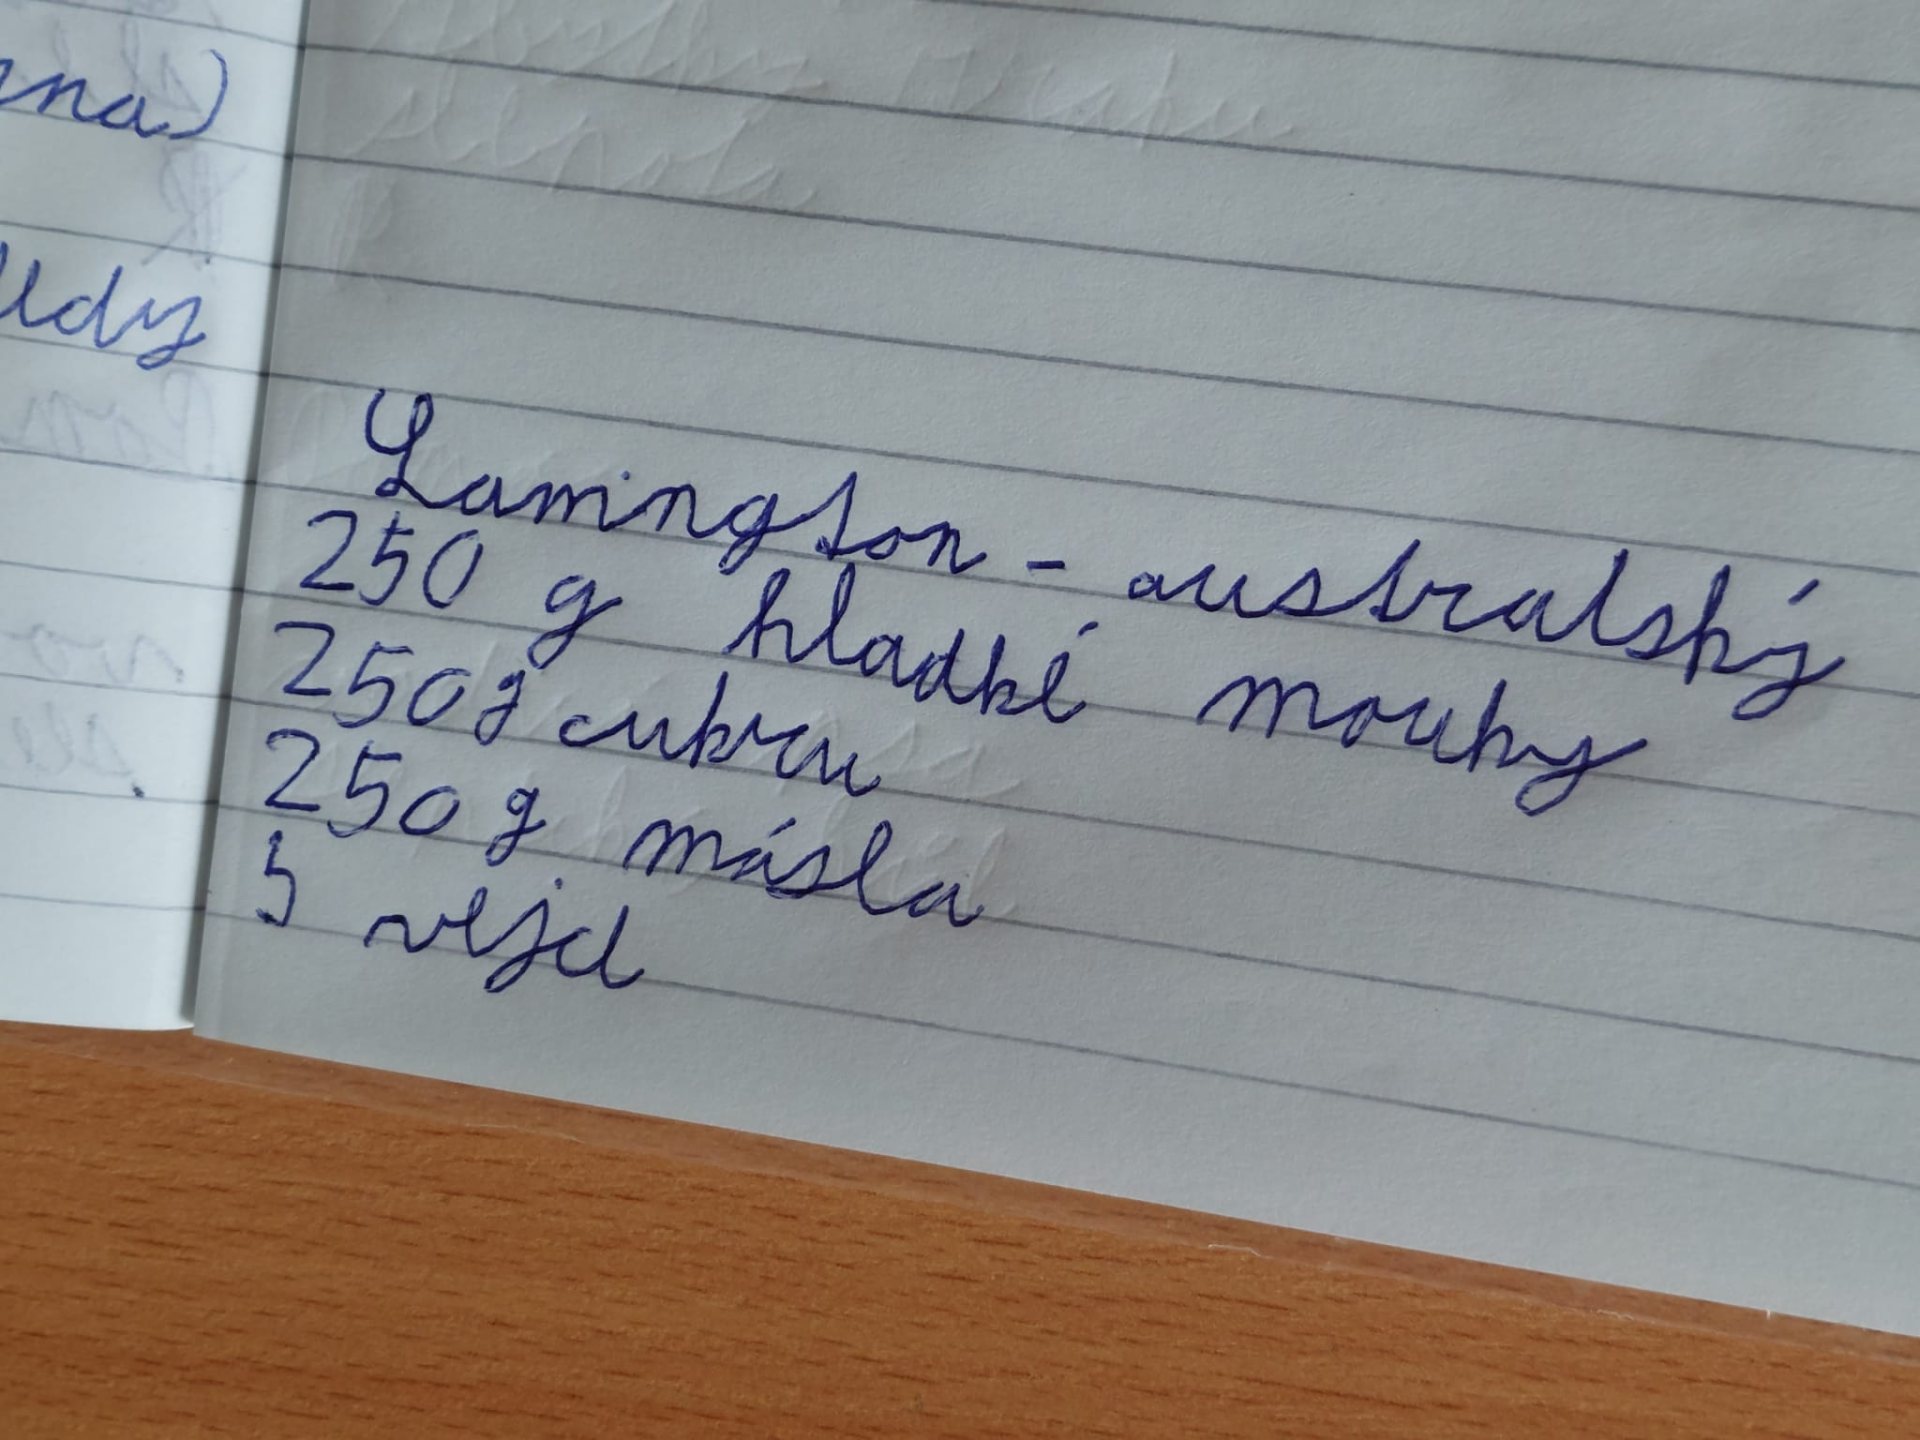 Lamington - australský
250 g hladké mouky
250g cukru
250 g másla
5 vejcl